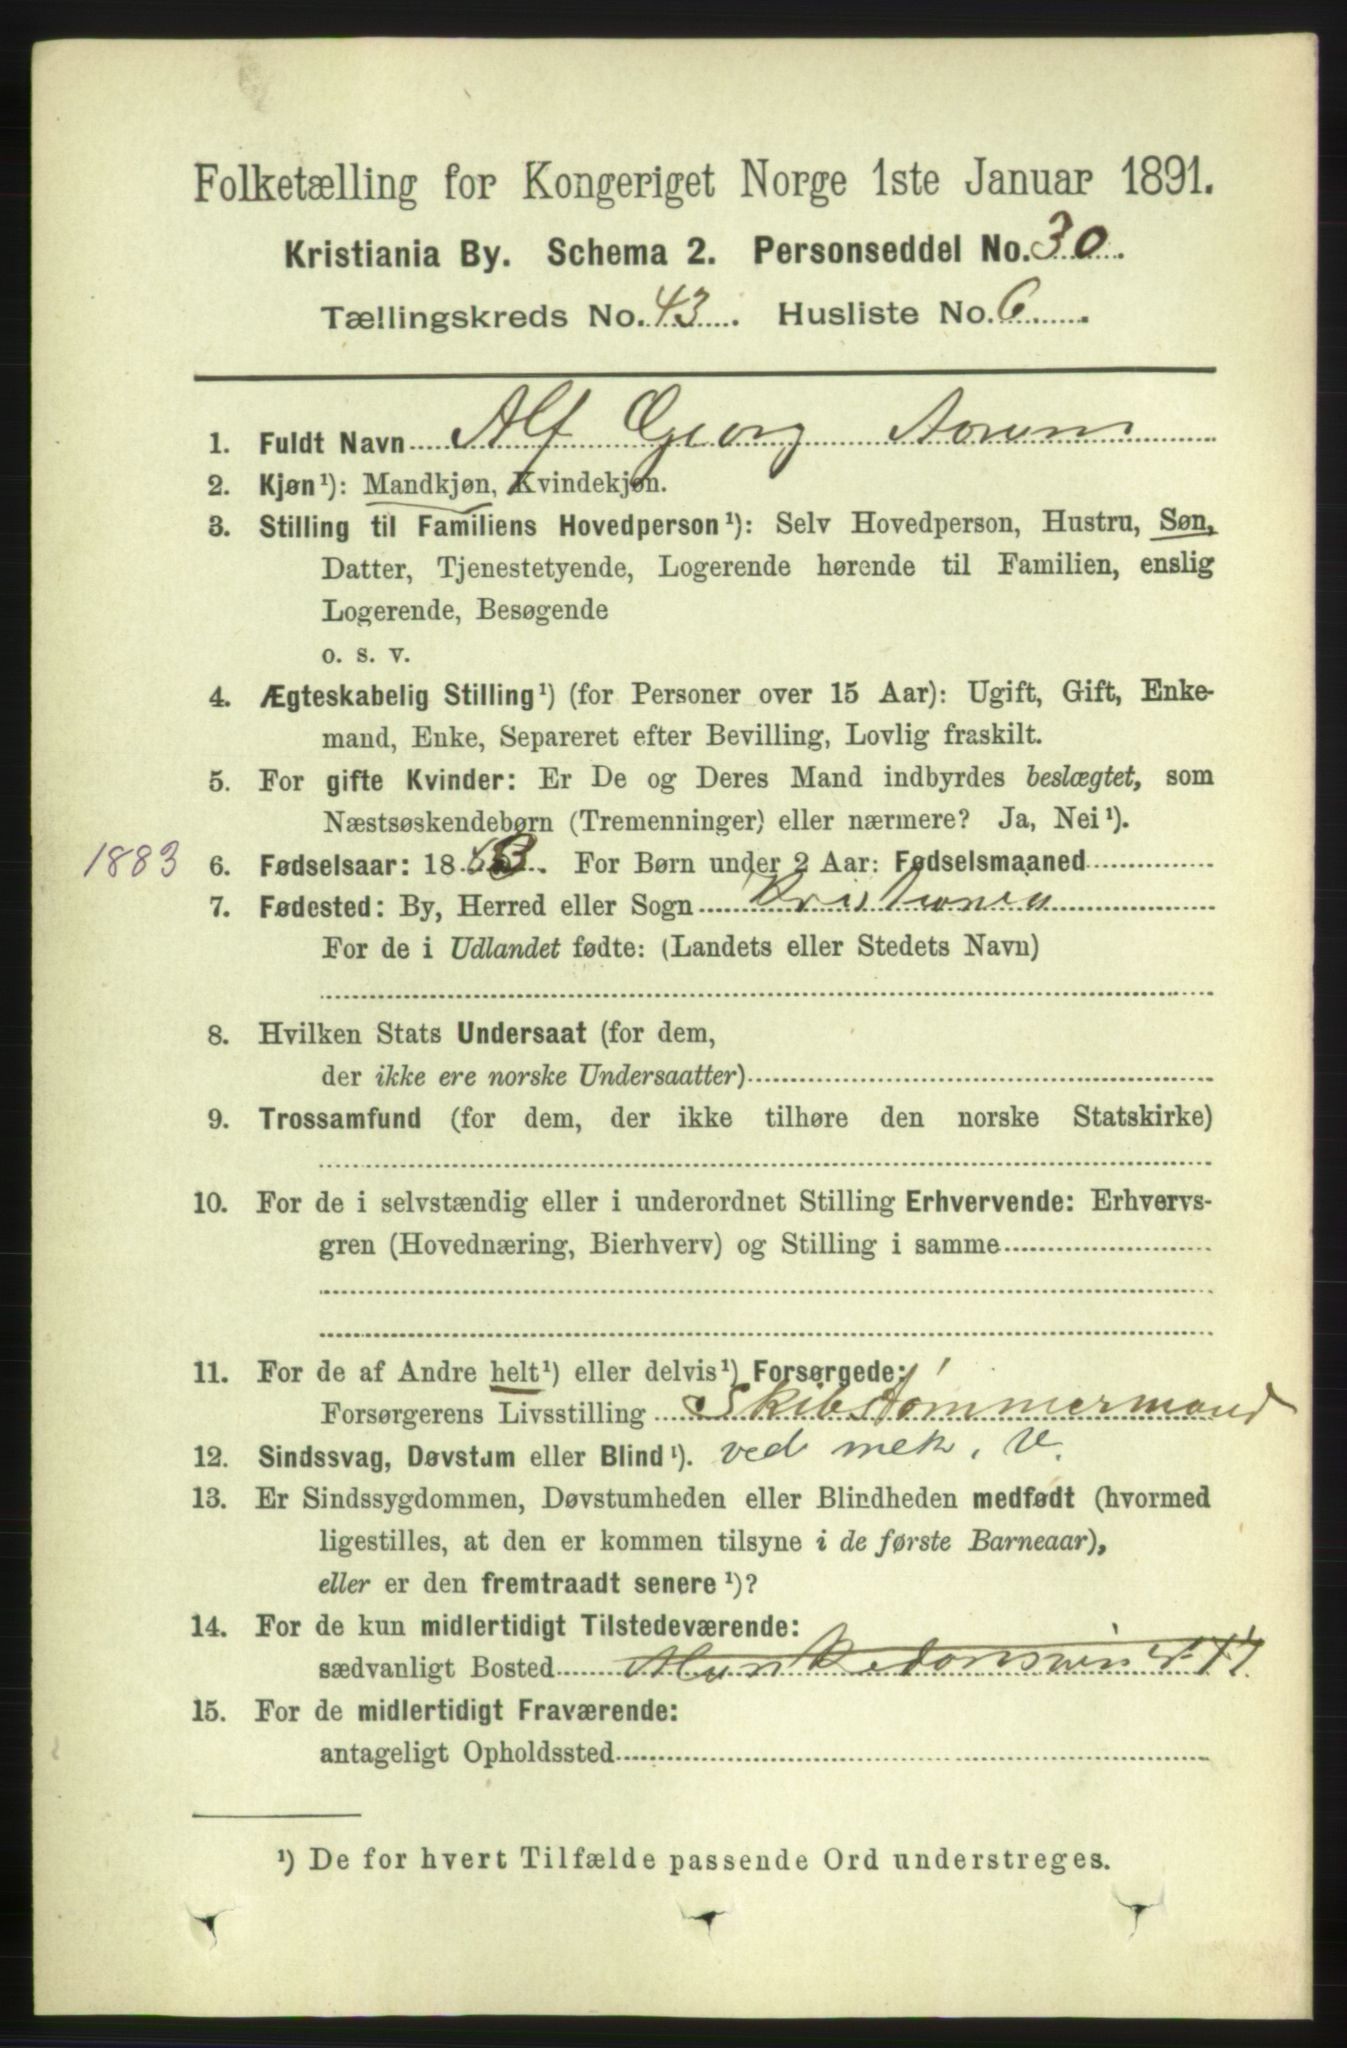 Folketælling for Kongeriget Norge 1ste Januar 1891.
Kristiania By. Schema 2. Personseddel No. 30.
Tællingskreds No. 43. Husliste No. 6.
1. Fuldt Navn Alf Georg
2. Kjøn¹): Mandkjøn, Kvindekjøn.
3. Stilling til Familiens Hovedperson¹): Selv Hovedperson, Hustru, Søn,
Datter, Tjenestetyende, Logerende hørende til Familien, enslig
Logerende, Besøgende
o. s. v.
4. Ægteskabelig Stilling¹) (for Personer over 15 Aar): Ugift, Gift, Enke-
mand, Enke, Separeret efter Bevilling, Lovlig fraskilt.
5. For gifte Kvinder: Er De og Deres Mand indbyrdes beslægtet, som
Næstsøskendebørn (Tremenninger) eller nærmere? Ja, Nei¹).
1883 6. Fødselsaar: 1883. For Børn under 2 Aar: Fødselsmaaned
7. Fødested: By, Herred eller Sogn Kristiania
For de i Udlandet fødte: (Landets eller Stedets Navn)
8. Hvilken Stats Undersaat (for dem,
der ikke ere norske Undersaatter)
9. Trossamfund (for dem, der ikke tilhøre den norske Statskirke)
10. For de i selvstændig eller i underordnet Stilling Erhvervende: Erhvervs-
gren (Hovednæring, Bierhverv) og Stilling i samme
11. For de af Andre helt¹) eller delvis¹) Forsørgede:
Forsørgerens Livsstilling Skibstömmermand
12. Sindssvag, Døvstum eller Blind¹). ved mek. V.
13. Er Sindssygdommen, Døvstumheden eller Blindheden medfødt (hvormed
ligestilles, at den er kommen tilsyne i de første Barneaar),
eller er den fremtraadt senere¹)?
14. For de kun midlertidigt Tilstedeværende:
sædvanligt Bosted
15. For de midlertidigt Fraværende:
antageligt Opholdssted
¹) De for hvert Tilfælde passende Ord understreges.